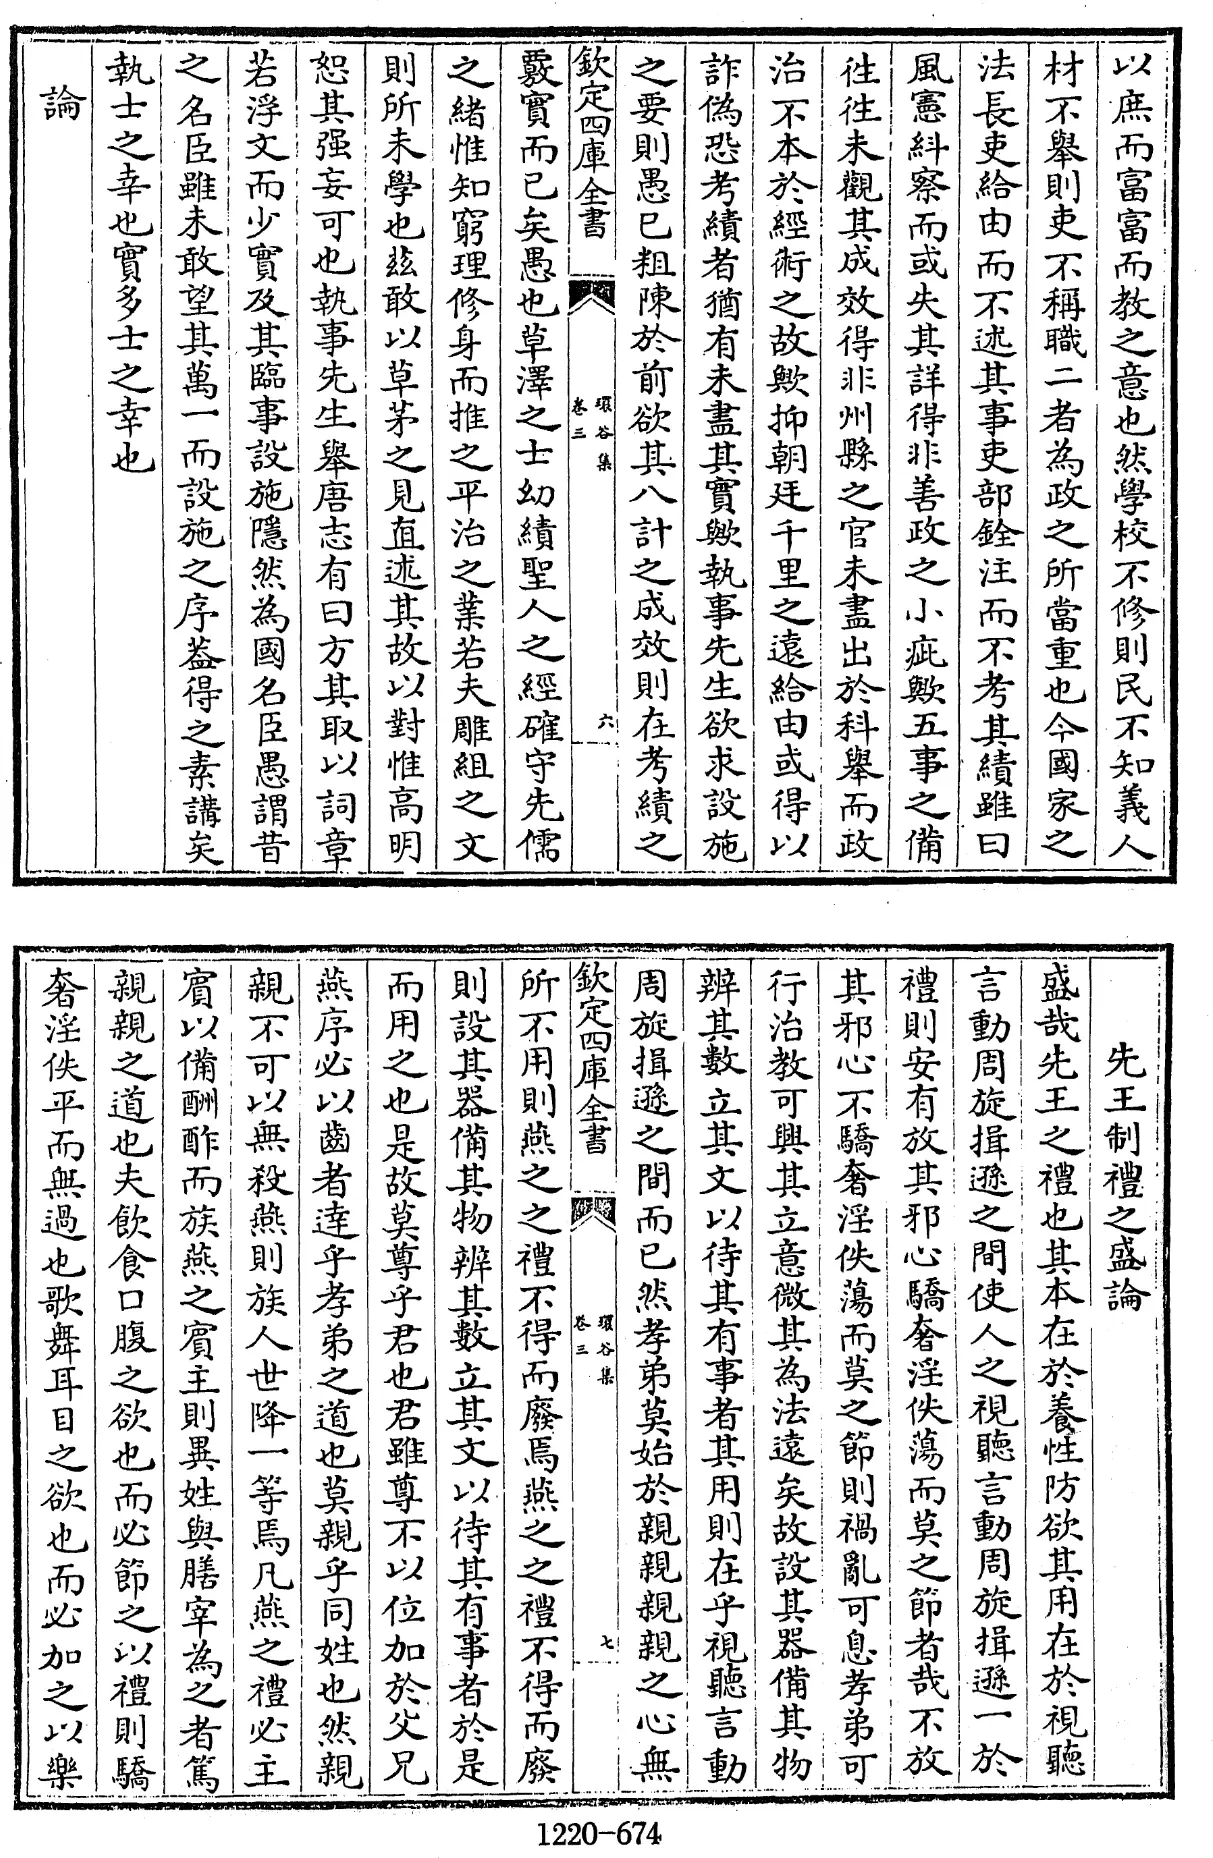 以庶而富富而教之意也然學校不修則民不知義人
材不舉則吏不稱職二者為政之所當重也今國家之
法長吏給由而不述其事吏部銓注而不考其績雖曰
風憲糾察而或失其詳得非善政之小疵歟五事之備
徃徃未觀其成效得非州縣之官未盡出於科舉而政
治不本於經術之故歟抑朝廷千里之遠給由或得以
詐偽恐考績者猶有未盡其實歟執事先生欲求設施
之要則愚已粗陳於前欲其八計之成效則在考績之
欽定四庫全書
環谷集
卷三
六
覈實而已矣愚也草澤之士幼績聖人之經確守先儒
之緒惟知窮理修身而推之平治之業若夫雕組之文
則所未學也玆敢以草茅之見直述其故以對惟高明
恕其强妄可也執事先生舉唐志有曰方其取以詞章
若浮文而少實及其臨事設施隱然為國名臣愚謂昔
之名臣雖未敢望其萬一而設施之序葢得之素講矣
執士之幸也實多士之幸也
論
先王制禮之盛論
盛哉先王之禮也其本在於養性防欲其用在於視聽
言動周旋揖遜之間使人之視聽言動周旋揖遜一於
禮則安有放其邪心驕奢淫佚蕩而莫之節者哉不放
其邪心不驕奢淫佚蕩而莫之節則禍亂可息孝弟可
行治教可興其立意微其為法遠矣故設其器備其物
辨其數立其文以待其有事者其用則在乎視聽言動
周旋揖遜之間而已然孝弟莫始於親親親親之心無
欽定四庫全書
環谷集
卷三
七
所不用則燕之之禮不得而廢焉燕之之禮不得而廢
則設其器備其物辨其數立其文以待其有事者於是
而用之也是故莫尊乎君也君雖尊不以位加於父兄
燕序必以齒者達乎孝弟之道也莫親乎同姓也然親
親不可以無殺燕則族人世降一等焉凡燕之禮必主
賓以備酬酢而族燕之賓主則異姓與膳宰為之者篤
親親之道也夫飲食口腹之欲也而必節之以禮則驕
奢淫佚平而無過也歌舞耳目之欲也而必加之以樂
1220-674